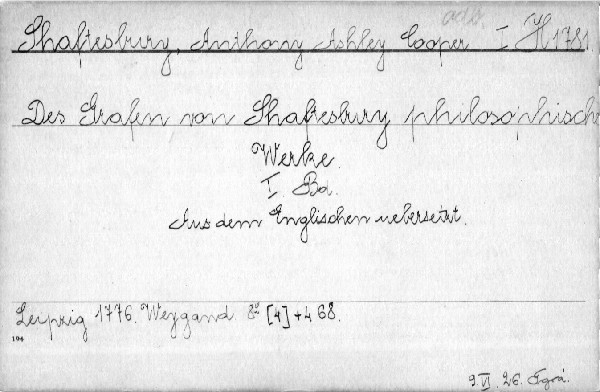 odb.
Shaftesbury, Anthony Ashley Cooper I H 1781.
Des Grafen von Shaftesbury philosophische
Werke.
I. Bd.
Aus dem Englischen uebersetzt.
Leipzig 1776. Weygand 8° [4]+468.
104
9. VI. 26.